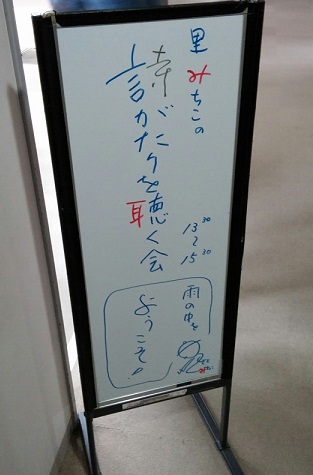 里みちこの
詩がたりを聴く会
13:30
〜
15:30
雨の中を
ようこそ!